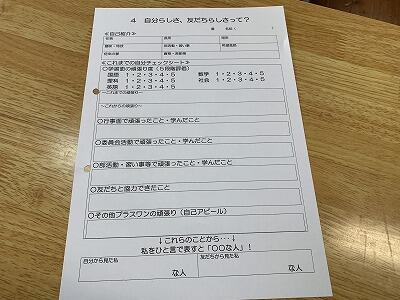 4 自分らしさ、友だちらしさって？
番 名前（ ）
≪自己紹介≫
≪これまでの自分チェックシート≫
〇学習面の頑張り度（５段階評価）
国語 1・2・3・4・5 数学 1・2・3・4・5
理科 1・2・3・4・5 社会 1・2・3・4・5
英語 1・2・3・4・5
～これまでの頑張り～
～これからの頑張り～
〇行事面で頑張ったこと・学んだこと
〇委員会活動で頑張ったこと・学んだこと
〇部活動・習い事等で頑張ったこと・学んだこと
〇友だちと協力できたこと
〇その他プラスワンの頑張り（自己アピール）
↓これらのことから・・・↓
私をひと言で表すと「〇〇な人」！
自分から見た私 友だちから見た私
な人 な人